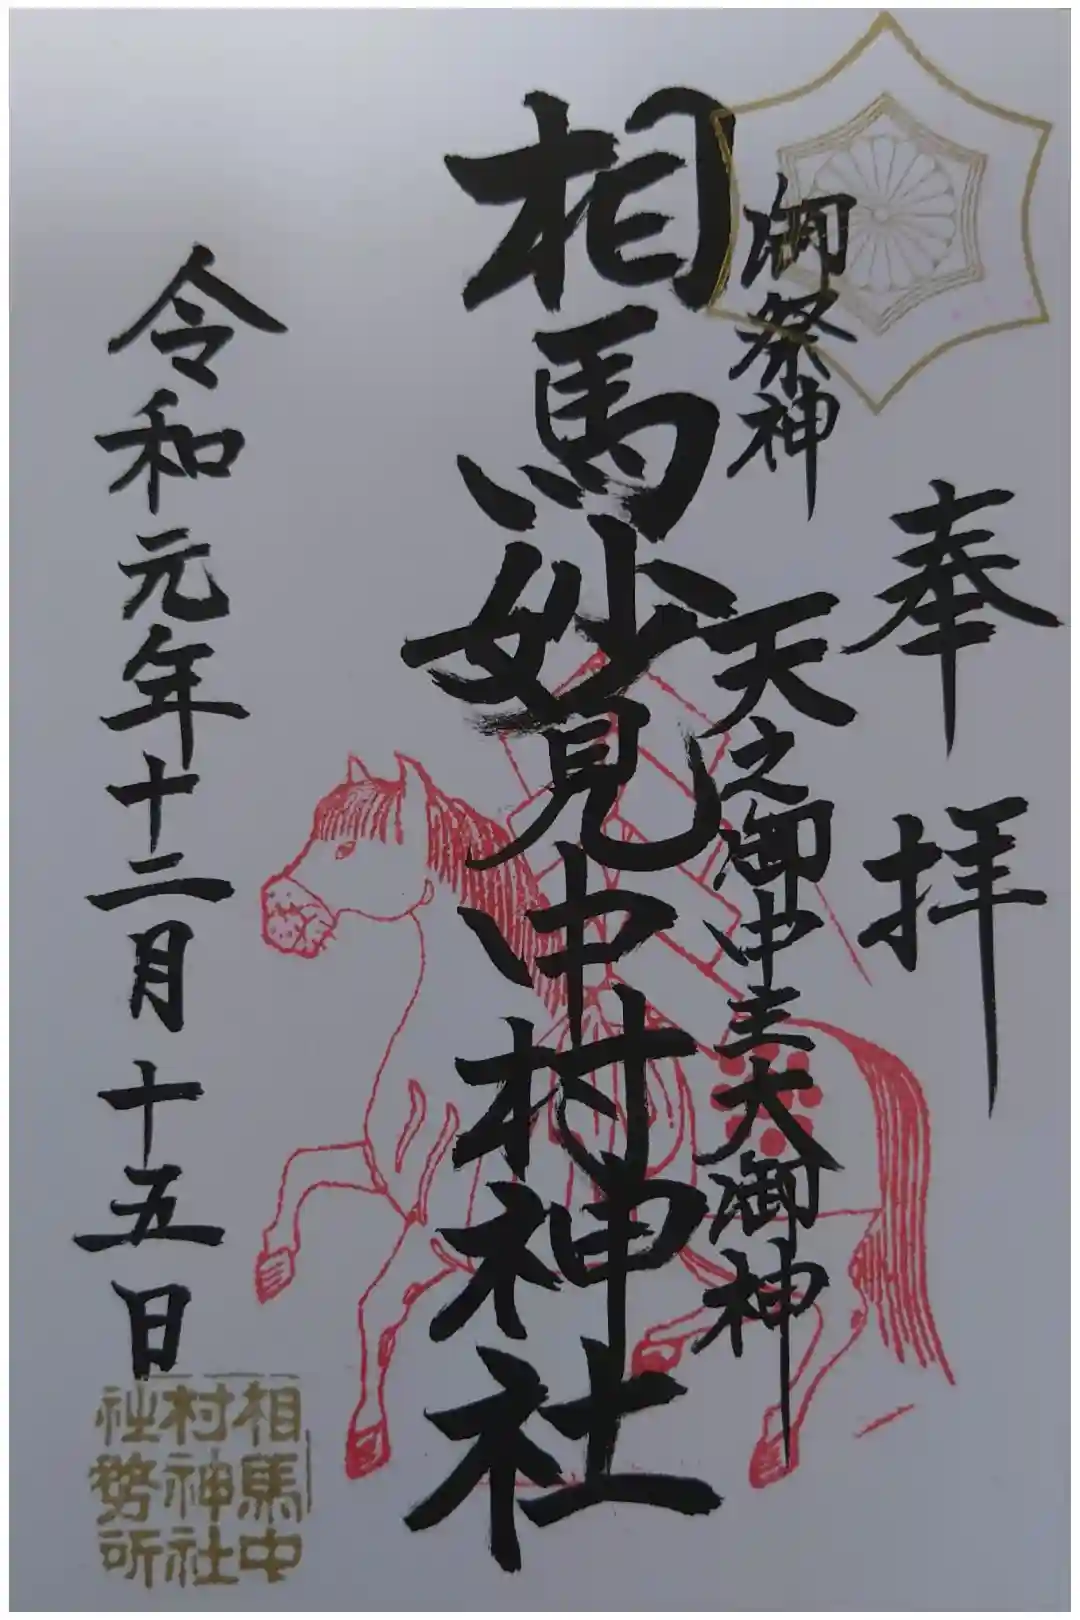 奉拝
御祭神 天之御中主大御神
相馬妙見中村神社
令和元年十二月十五日
相馬中
村神社
社務所